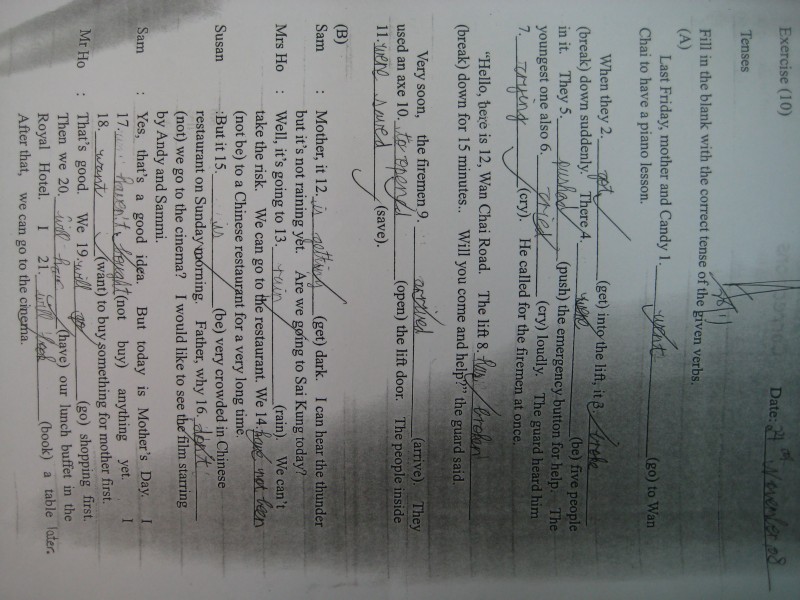 Exercise (10)
Date: 21 November 08
Tenses
Fill in the blank with the correct tense of the given verbs.
(A)
Last Friday, mother and Candy 1. went (go) to Wan
Chai to have a piano lesson.
When they 2. got (get) into the lift, it 3. broke
(break) down suddenly. There 4. were (be) five people
in it. They 5. pushed (push) the emergency button for help. The
youngest one also 6. cried (cry) loudly. The guard heard him
7. crying (cry). He called for the firemen at once.
"Hello, here is 12, Wan Chai Road. The lift 8. has broken
(break) down for 15 minutes.. Will you come and help?" the guard said.
Very soon, the firemen 9. arrived (arrive). They
used an axe 10. to opened (open) the lift door. The people inside
11. were saved (save).
(B)
Sam : Mother, it 12. is getting (get) dark. I can hear the thunder
but it's not raining yet. Are we going to Sai Kung today?
Mrs Ho : Well, it's going to 13. rain (rain) We can't
take the risk. We can go to the restaurant. We 14. have not been
(not be) to a Chinese restaurant for a very long time.
Susan : But it 15. is (be) very crowded in Chinese
restaurant on Sunday morning. Father, why 16. don't
(not) we go to the cinema? I would like to see the film starring
by Andy and Sammi.
Sam : Yes, that's a good idea. But today is Mother's Day. I
17. haven't bought (not buy) anything yet. I
18. want (want) to buy something for mother first.
Mr Ho : That's good. We 19. will go (go) shopping first.
Then we 20. will have (have) our lunch buffet in the
Royal Hotel. I 21. will book (book) a table later.
After that, we can go to the cinema.